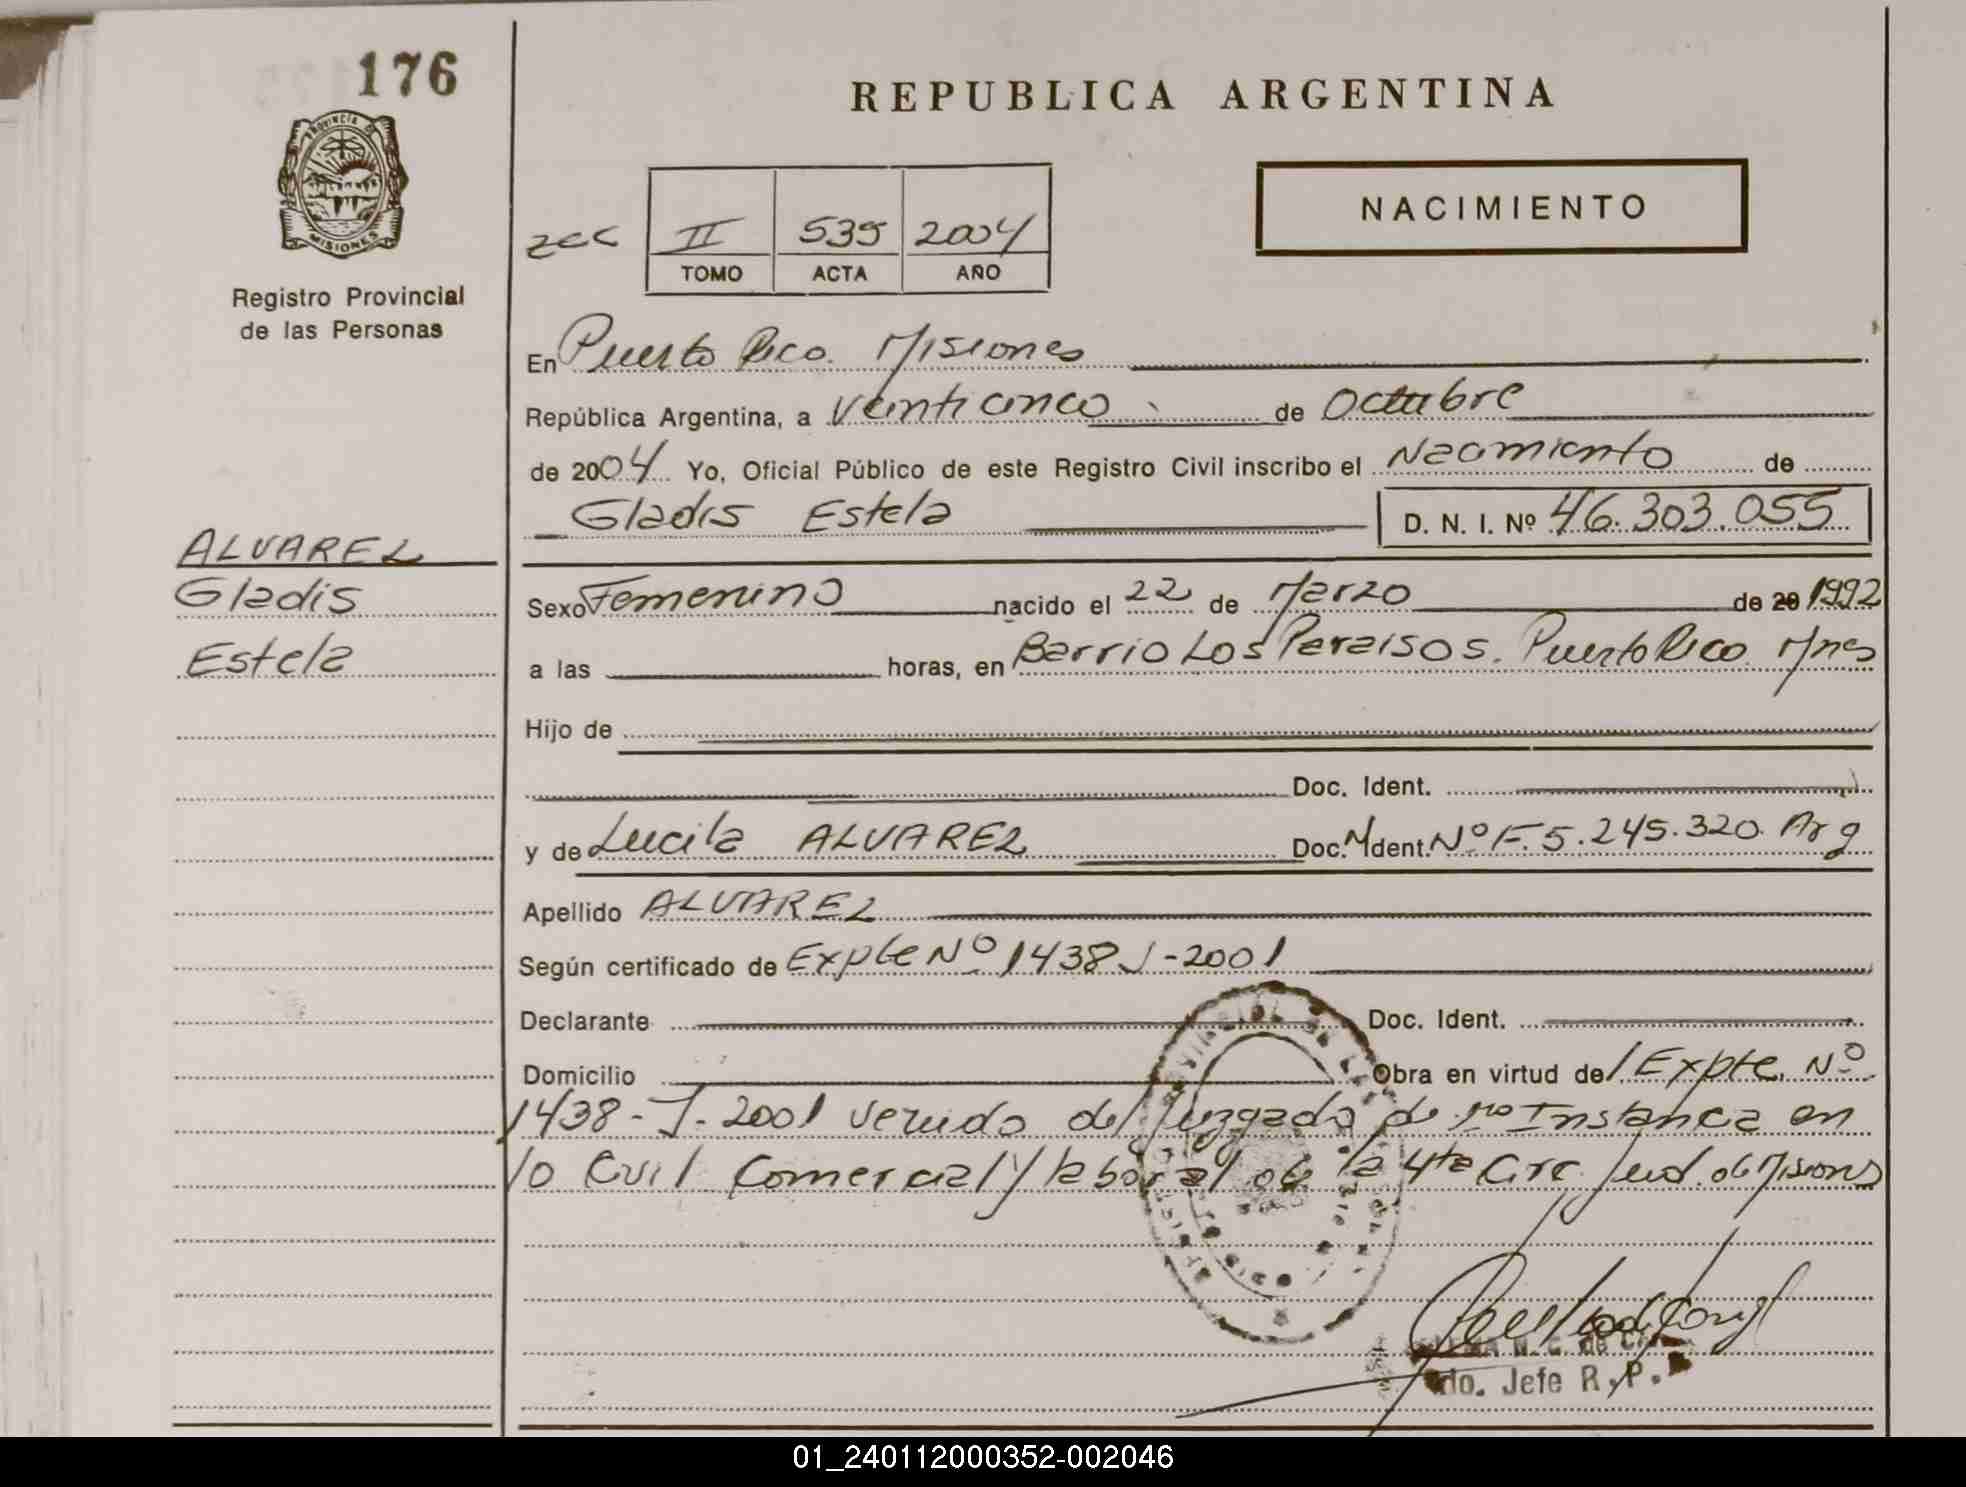 176
REPUBLICA ARGENTINA
PROVINCIA DE
MISIONES
Registro Provincial
de las Personas
NACIMIENTO
II 535 2004
TOMO ACTA AÑO
En Puerto Rico. Misiones
República Argentina, a Veinticinco de Octubre
de 2004 Yo, Oficial Público de este Registro Civil inscribo el Nacimiento de
Gladis Estela D. N. I. Nº 46.303.055
ALVAREZ
Gladis
Estela
Sexo Femenino nacido el 22 de Marzo de 20 1992
a las horas, en Barrio Los Paraisos. Puerto Rico Mnes
Hijo de
Doc. Ident.
y de Lucila ALVAREZ Doc. M Ident. Nº F. 5.245.320. Arg
Apellido ALVAREZ
Según certificado de Expte Nº 1438 J-2001
Declarante Doc. Ident.
Domicilio Obra en virtud del Expte. Nº
1438-J-2001 venido del Juzgado de 1ra Instancia en
lo Civil Comercial y laboral de la 4ta Circ Jud. de Misiones
N. C. de
do. Jefe R.P.
01_240112000352-002046